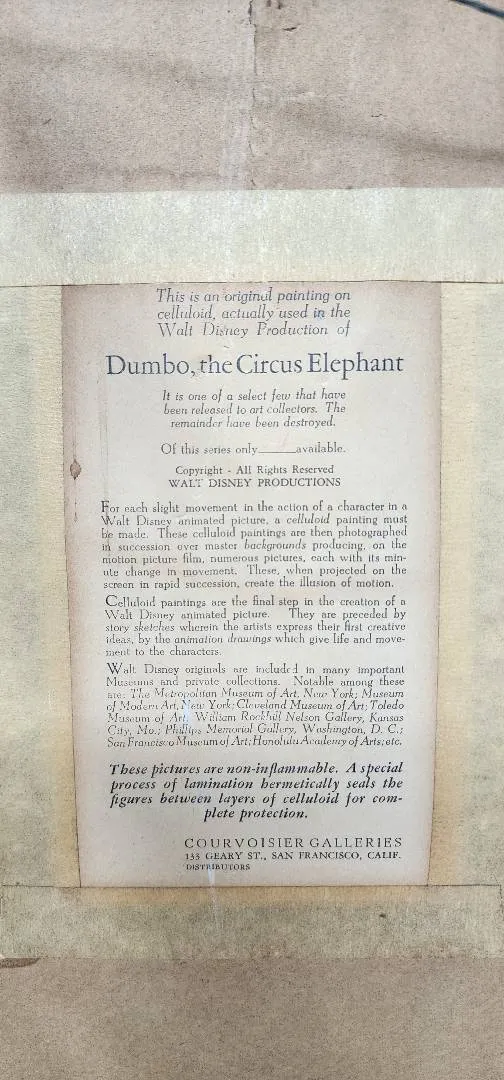 This is an original painting on
celluloid, actually used in the
Walt Disney Production of
Dumbo, the Circus Elephant
It is one of a select few that have
been released to art collectors. The
remainder have been destroyed.
Of this series only______available.
Copyright - All Rights Reserved
WALT DISNEY PRODUCTIONS
For each slight movement in the action of a character in a
Walt Disney animated picture, a celluloid painting must
be made. These celluloid paintings are then photographed
in succession over master backgrounds producing, on the
motion picture film, numerous pictures, each with its min-
ute change in movement. These, when projected on the
screen in rapid succession, create the illusion of motion.
Celluloid paintings are the final step in the creation of a
Walt Disney animated picture. They are preceded by
story sketches wherein the artists express their first creative
ideas, by the animation drawings which give life and move-
ment to the characters.
Walt Disney originals are included in many important
Museums and private collections. Notable among these
are: The Metropolitan Museum of Art, New York; Museum
of Modern Art, New York; Cleveland Museum of Art; Toledo
Museum of Art; William Rockhill Nelson Gallery, Kansas
City, Mo.; Phillips Memorial Gallery, Washington, D. C.;
San Francisco Museum of Art; Honolulu Academy of Arts; etc.
These pictures are non-inflammable. A special
process of lamination hermetically seals the
figures between layers of celluloid for com-
plete protection.
COURVOISIER GALLERIES
133 GEARY ST., SAN FRANCISCO, CALIF.
DISTRIBUTORS